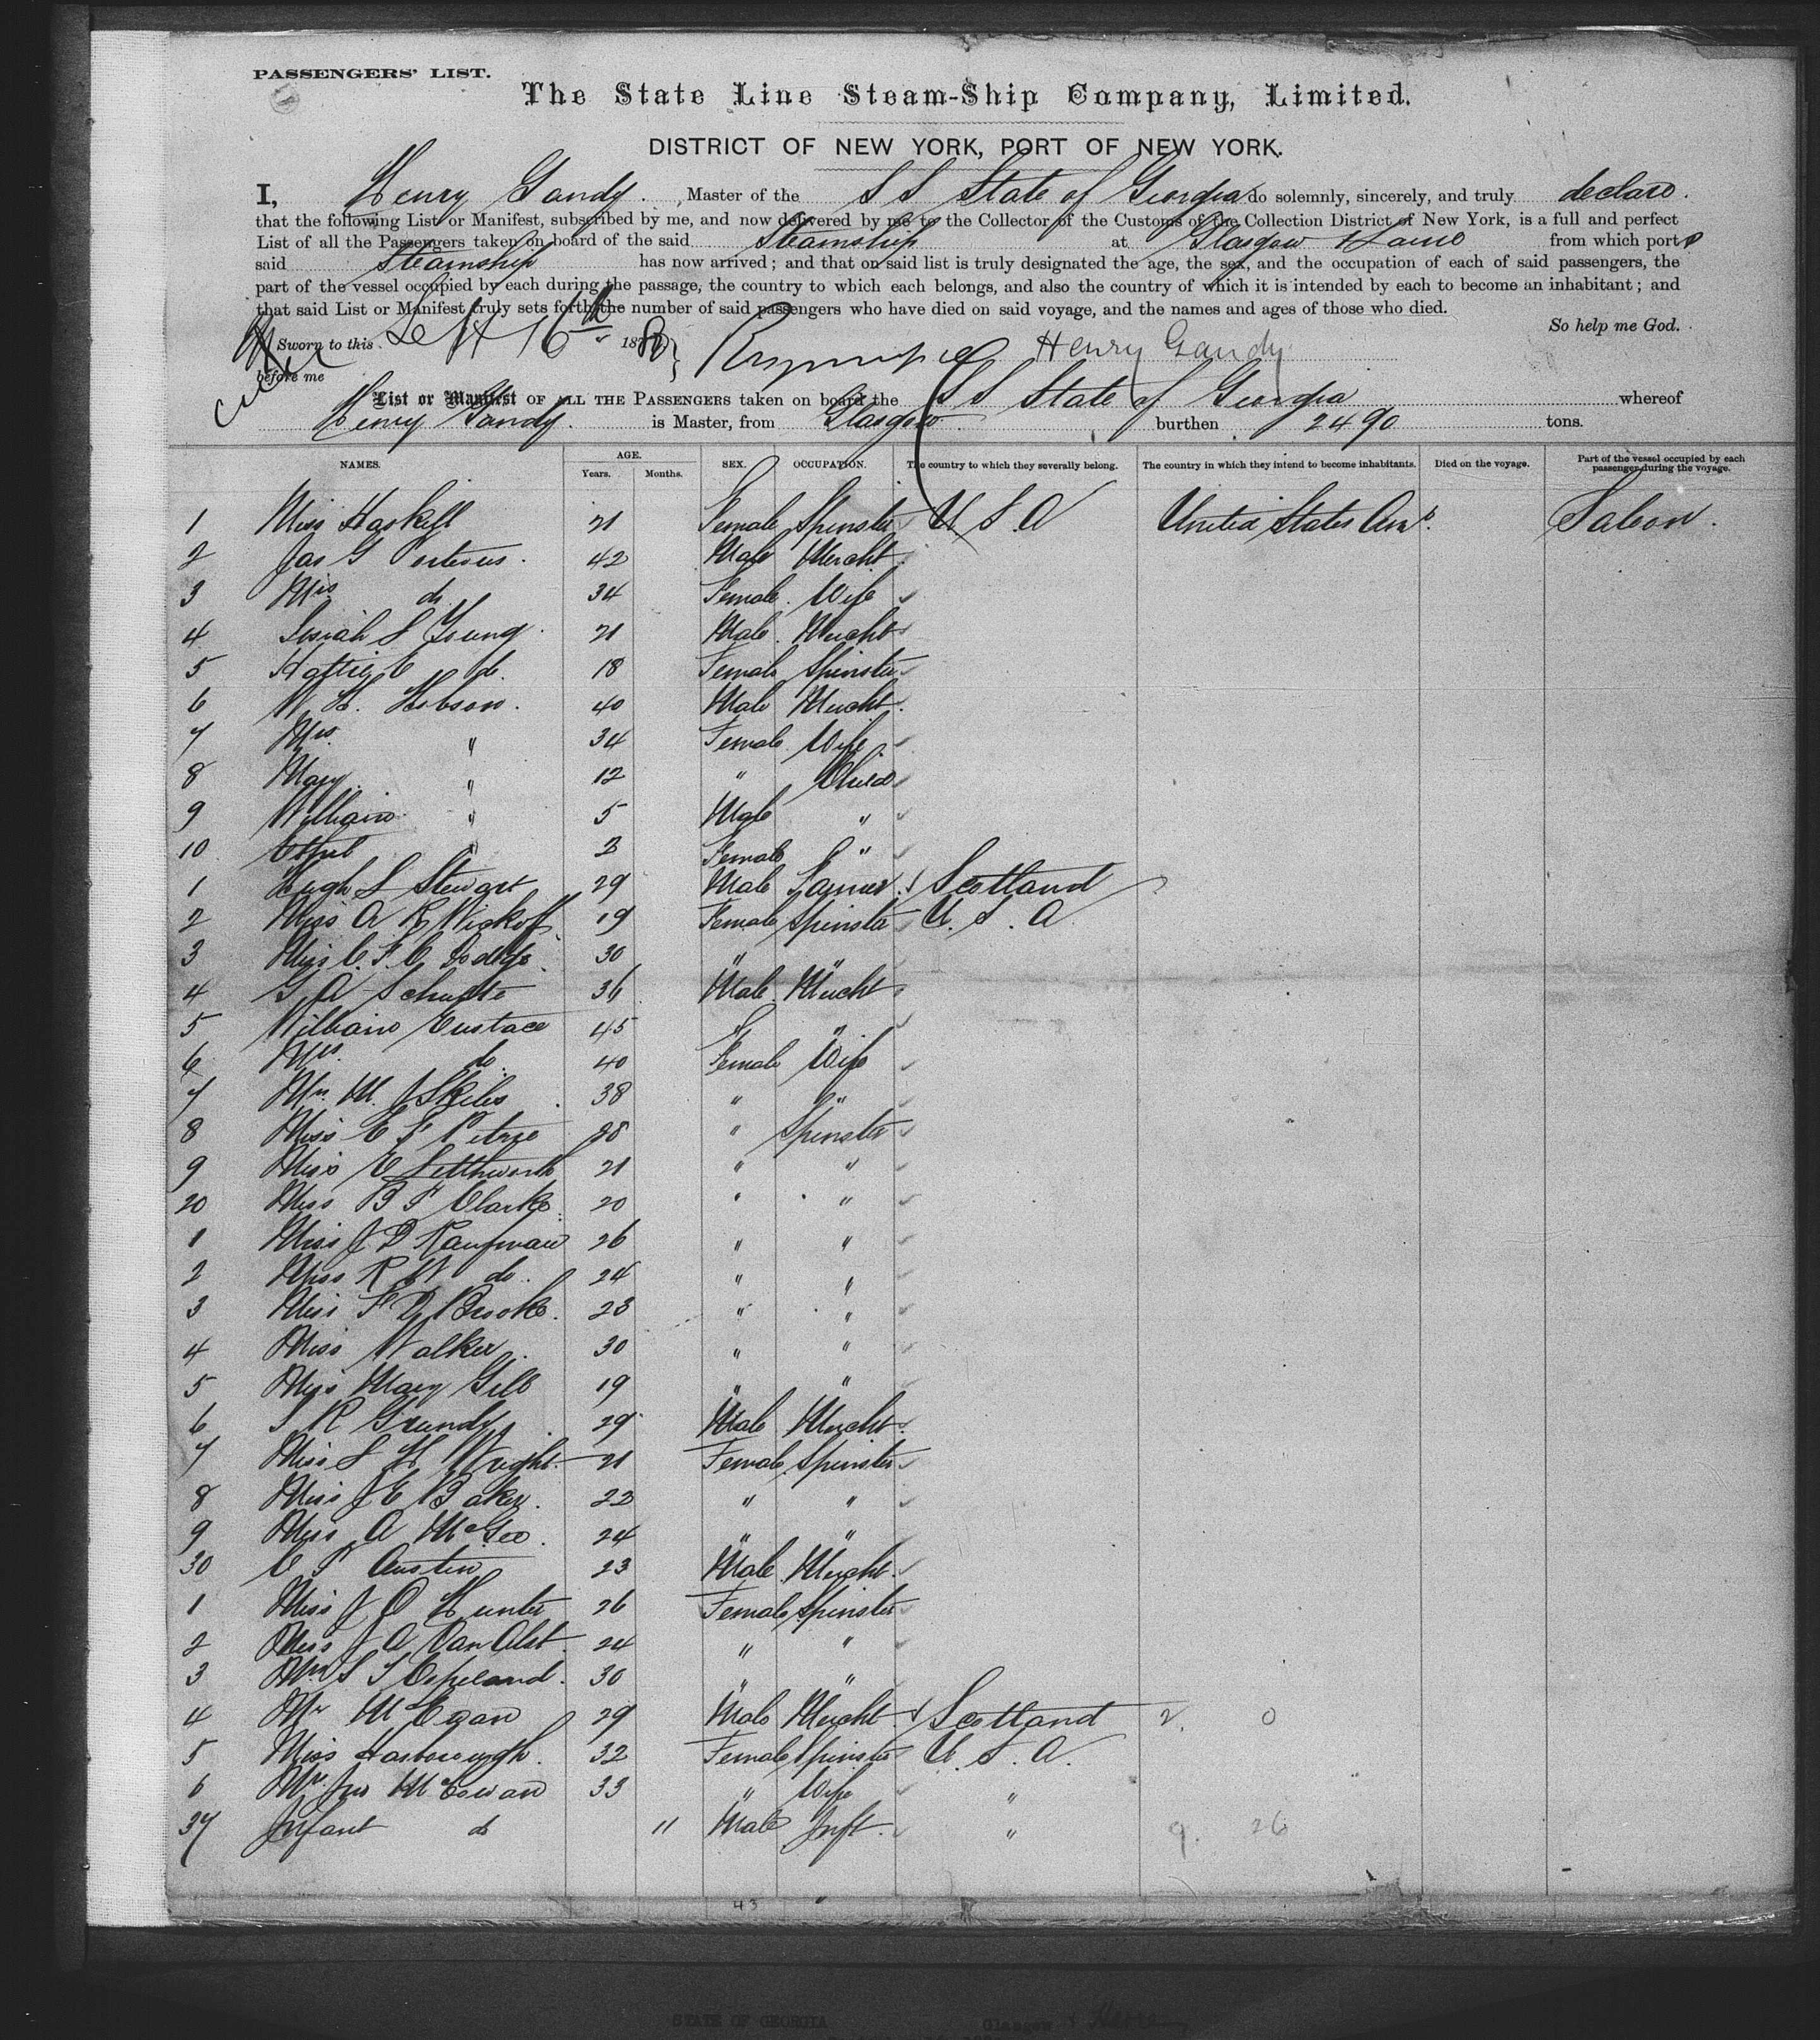 PASSENGERS' LIST.
The State Line Steam-Ship Company, Limited.
DISTRICT OF NEW YORK, PORT OF NEW YORK.
I, Henry Gandy. , Master of the S S State of Georgia do solemnly, sincerely, and truly declare.
that the following List or Manifest, subscribed by me, and now delivered by me to the Collector of the Customs of the Collection District of New York, is a full and perfect
List of all the Passengers taken on board of the said Steamship at Glasgow & Larne from which port
said Steamship has now arrived; and that on said list is truly designated the age, the sex, and the occupation of each of said passengers, the
part of the vessel occupied by each during the passage, the country to which each belongs, and also the country of which it is intended by each to become an inhabitant; and
that said List or Manifest truly sets forth the number of said passengers who have died on said voyage, and the names and ages of those who died.
So help me God.
Sworn to this Sept 16th 188 Henry Gandy
before me
List or Manifest OF ALL THE PASSENGERS taken on board the S S State of Georgia whereof
Henry Gandy. is Master, from Glasgow burthen 2490 tons.
NAMES. AGE. Years. Months. SEX. OCCUPATION. The country to which they severally belong. The country in which they intend to become inhabitants. Died on the voyage. Part of the vessel occupied by each passenger during the voyage.
1 Miss Haskell 21 Female Spinster U S A United States Ama. Saloon.
2 Jas G Porteous. 42 Male Mercht
3 Mrs do 34 Female Wife
4 Josiah L Young 21 Male Mercht
5 Hattie E do. 18 Female Spinster
6 W H. Hobson. 40 Male Mercht.
7 Mrs. " 34 Female Wife
8 Mary " 12 " Child
9 William " 5 Male "
10 Ethel " 2 Female "
1 Hugh L Stewart 29 Male Farmer Scotland
2 Miss A R Wickoff 19 Female Spinster U. S. A
3 Miss C. F. C. Dodge 30 " "
4 G A Schulte 36 Male Mercht
5 William Eustace 45 " "
6 Mrs. do 40 Female Wife
7 Mrs. M. J Skiles 38 " "
8 Miss E F Petrie 28 " Spinster
9 Miss E 21 " "
20 Miss B F Clarke 20 " "
1 Miss J D Kaufman 26 " "
2 Miss R W do. 24 " "
3 Miss F D Brooke. 23 " "
4 Miss Walker 30 " "
5 Miss Mary Gill 19 " "
6 S R Grundy 29 Male Mercht
7 Miss L H Wright 21 Female Spinster
8 Miss J E Baker. 22 " "
9 Miss A McGee. 24 " "
30 C P Austin 23 Male Mercht
1 Miss J O Hunter 26 Female Spinster
2 Miss J A Van Alst 24 " "
3 Mrs S T Copeland. 30 " "
4 Mr McEgan 29 Male Mercht Scotland 2. 0
5 Miss Harborough. 32 Female Spinster U. S. A.
6 Mrs. Jno McCowan 33 " Wife "
37 Infant do 11 Male Inft. " 9. 26
43
STATE OF GEORGIA Glasgow & Larne